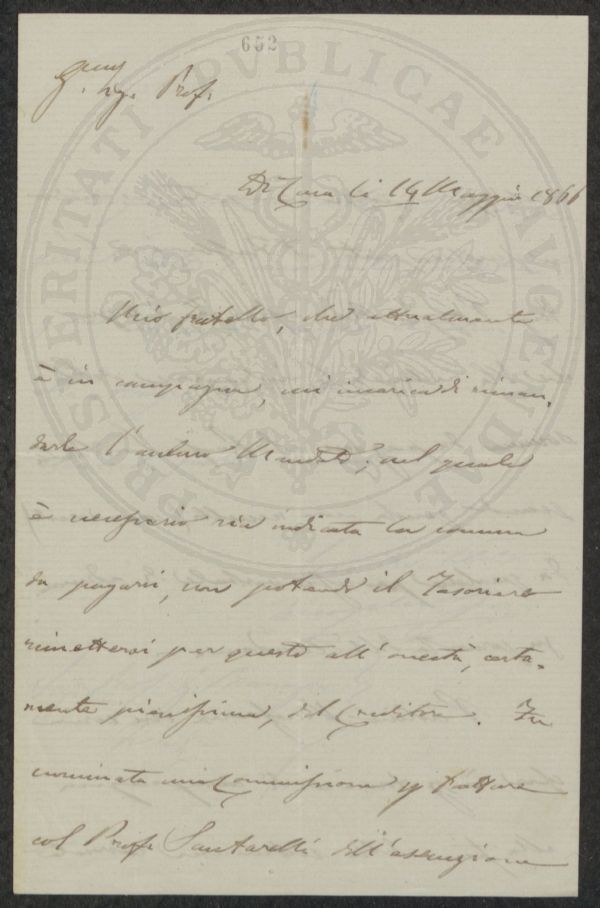 652
Prof.
Di Casa li 14 Maggio 1866
Mio fratello, che attualmente
è in campagna, mi incarica di riman-
darle l'anteso Mandato, nel quale
è necessario sia indicata la somma
da pagarsi, non potendo il Tesoriere
rimettersi per questo all'onestà, certa-
mente pienissima, del Creditore. Fu
nominata una Commissione p trattare
col Prof. Santarelli dell'esecuzione
PROSPERITATI PVBLICAE AVGENDAE